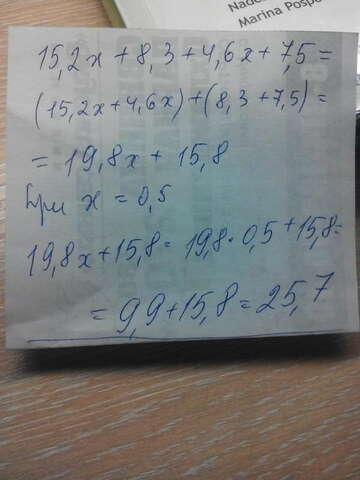 Marina Pospo
15,2x + 8,3 + 4,6x + 7,5 =
(15,2x + 4,6x) + (8,3 + 7,5) =
= 19,8x + 15,8
При x = 0,5
19,8x + 15,8 = 19,8 · 0,5 + 15,8 =
= 9,9 + 15,8 = 25,7